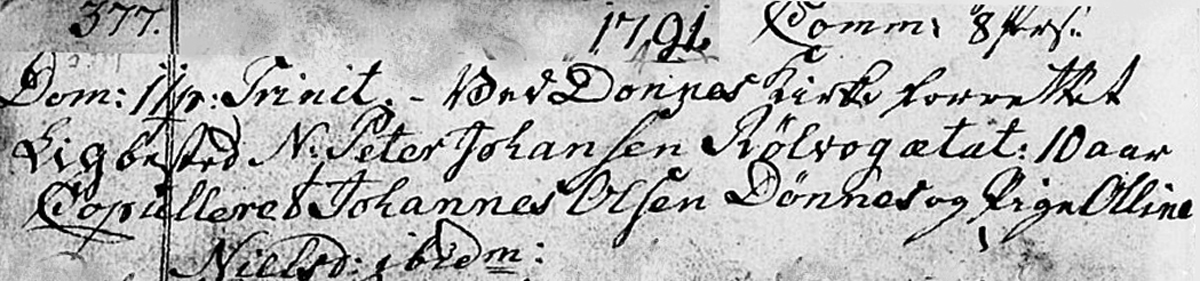 377. 1791. Comm: 8 Pers:
Dom: 11 p: Trinit. - Ved Dønnes Kirke forrettet
Ligbested N: Peter Johansen Rølvog ætat: 10 aar
Copulleret Johannes Olsen Dønnes og Pige Olline
Nielsd: ibidm: